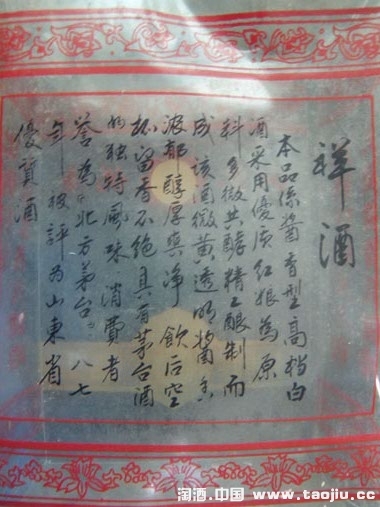 祥酒
本品係酱香型高档白
酒采用優质红娘為原
料多微共酵精工酿制而
成该酒微黄透明酱香
浓郁醇厚爽净飲后空
杯留香不绝具有茅台酒
的独特風味消費者
誉為北方茅台八七
年被評为山東省
優質酒
淘酒.中国 www.taojiu.cc